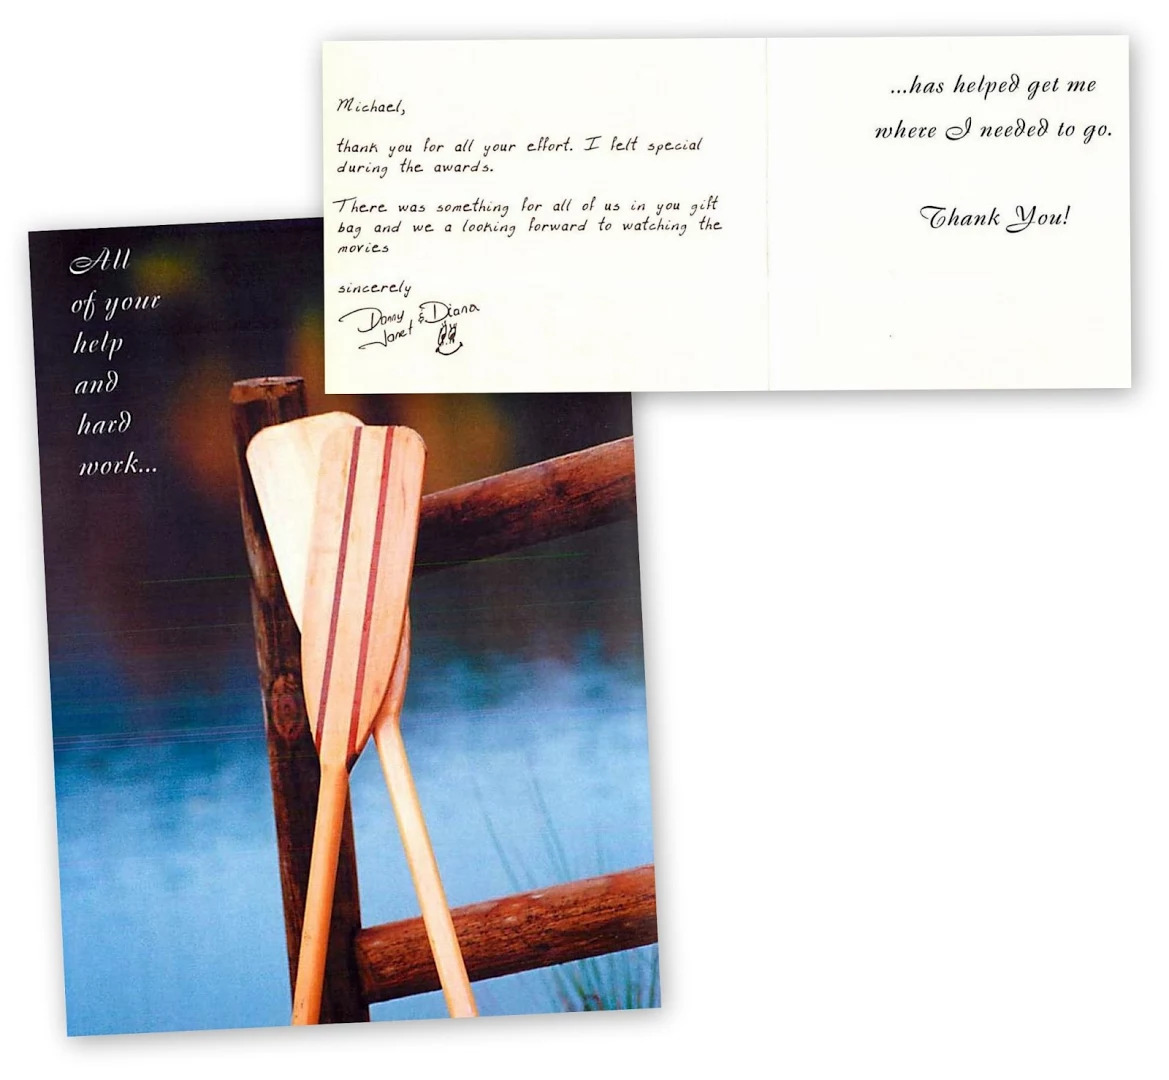 All
of your
help
and
hard
work...
Michael,
thank you for all your effort. I felt special
during the awards.
There was something for all of us in you gift
bag and we a looking forward to watching the
movies
sincerely
Danny & Diana
Janet
...has helped get me
where I needed to go.
Thank You!